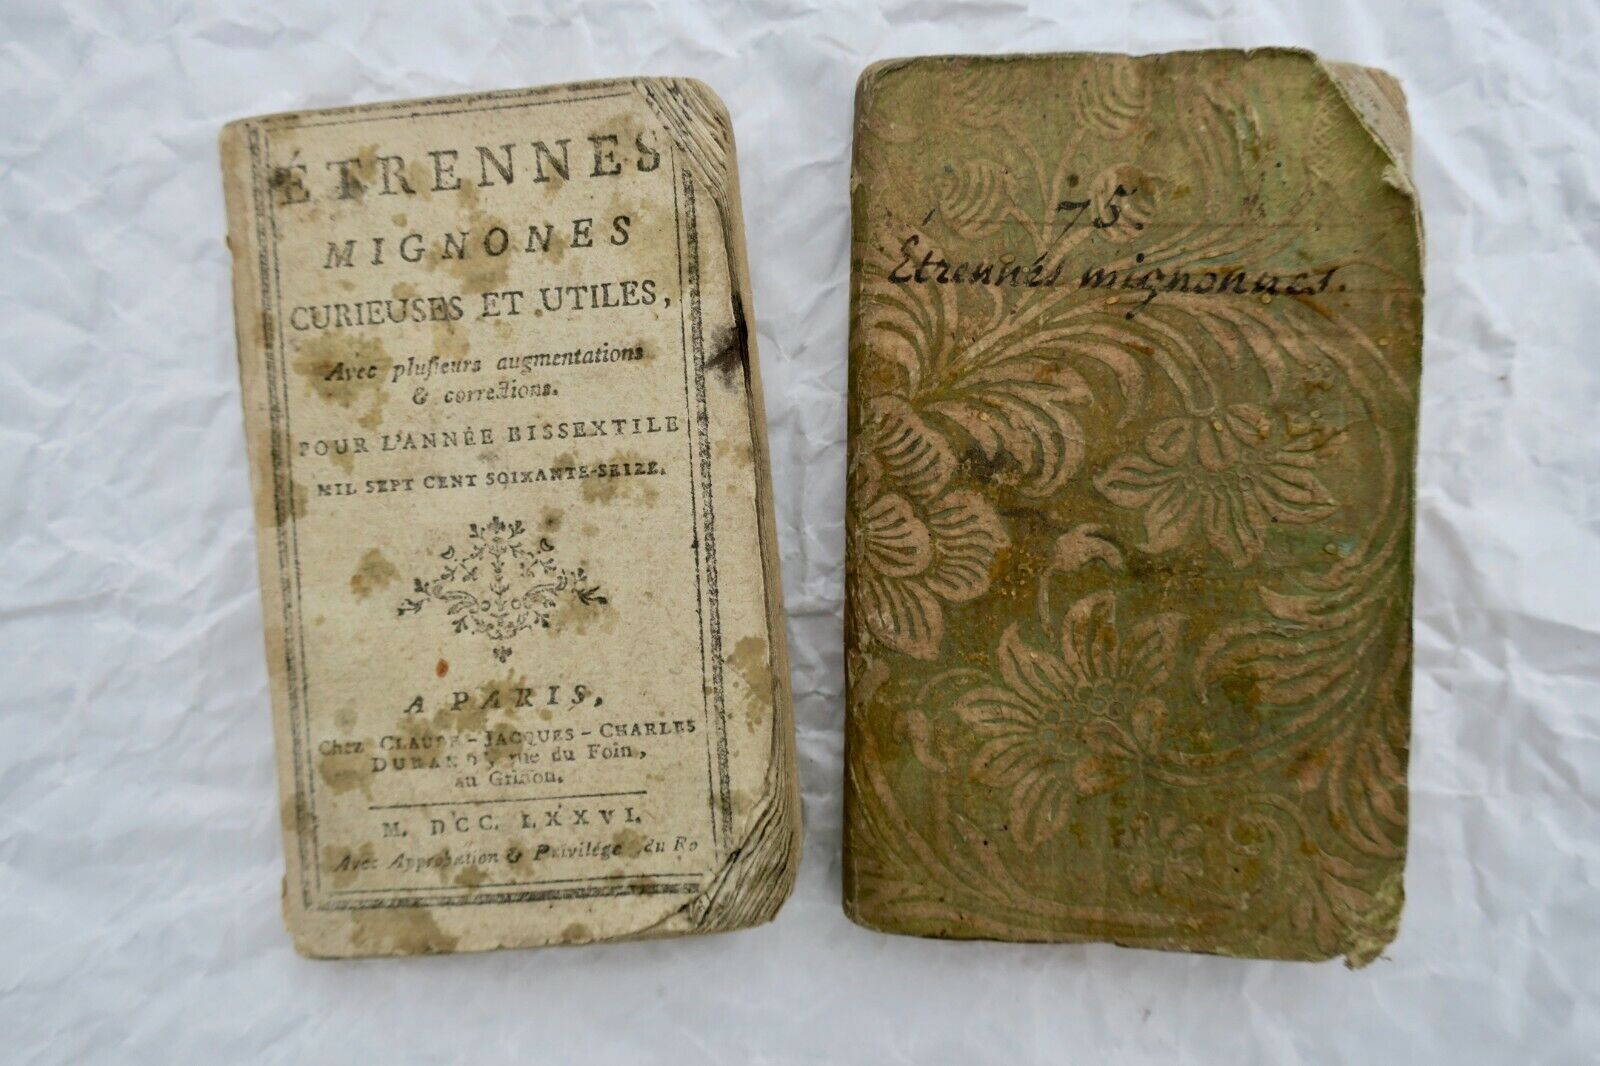 ÉTRENNES
MIGNONES
CURIEUSES ET UTILES,
Avec pluſieurs augmentations
& corrections.
POUR L'ANNÉE BISSEXTILE
MIL SEPT CENT SOIXANTE-SEIZE.
A PARIS,
Chez CLAUDE-JACQUES-CHARLES
DURAND, rue du Foin,
au Griffon.
M. DCC. LXXVI.
Avec Approbation & Privilége du Ro
75.
Étrennes mignonnes.